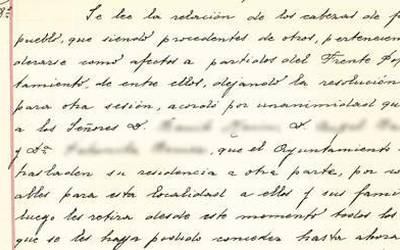 Se lee la relación de los cabezas de f
pueblo, que siendo procedentes de otros, pertenecen
derarse como afectos a partidos del Frente Pop
tamiento, de entre ellos, dejando la resolución
para otra sesión, acordó por unanimidad qu
a los Señores D. D.
y Dª que el Ayuntamiento
trasladen su residencia a otra parte, por co
ables para esta localidad a ellos y sus fami
luego les retira desde este momento todos los
que se les haya podido conceder hasta ahora